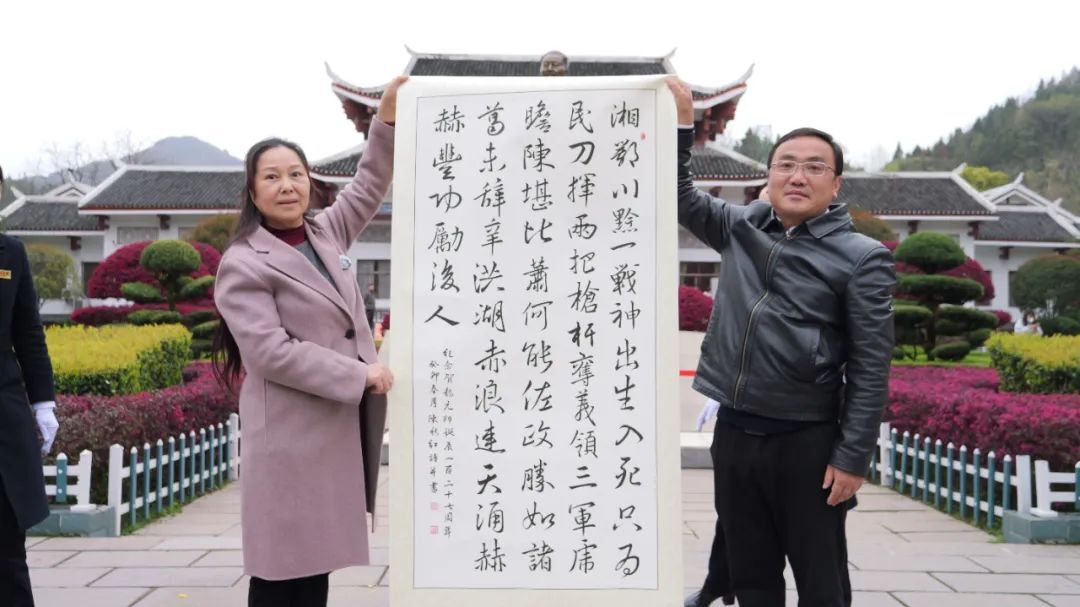 湘鄂川黔一戰神出生入死只為
民刀揮兩把槍杆奪義領三軍虎
膽陳堪比蕭何能佐政勝如諸
葛未辭辛洪湖赤浪連天涌赫
赫豐功勵後人
紀念賀龍元帥誕辰一百二十七周年
癸卯春月陳秋紅詩并書